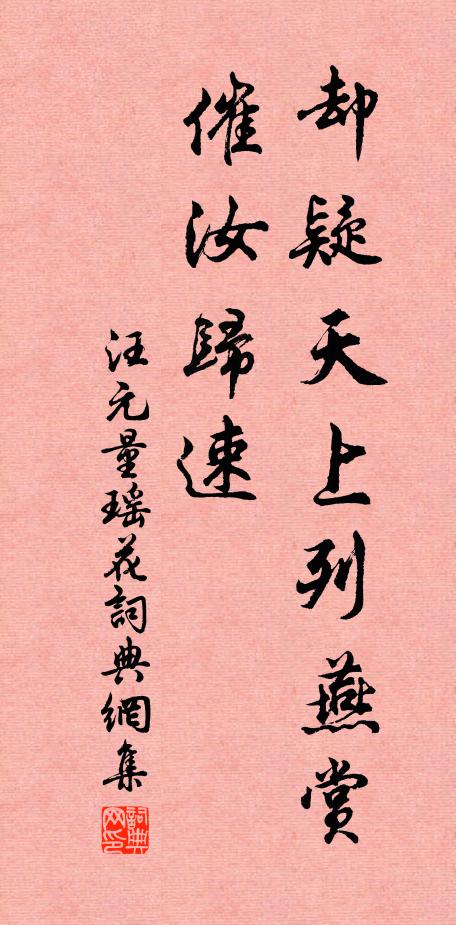 却疑天上列燕赏
催汝歸速
汪元量瑶花詞典網集
詞典网印